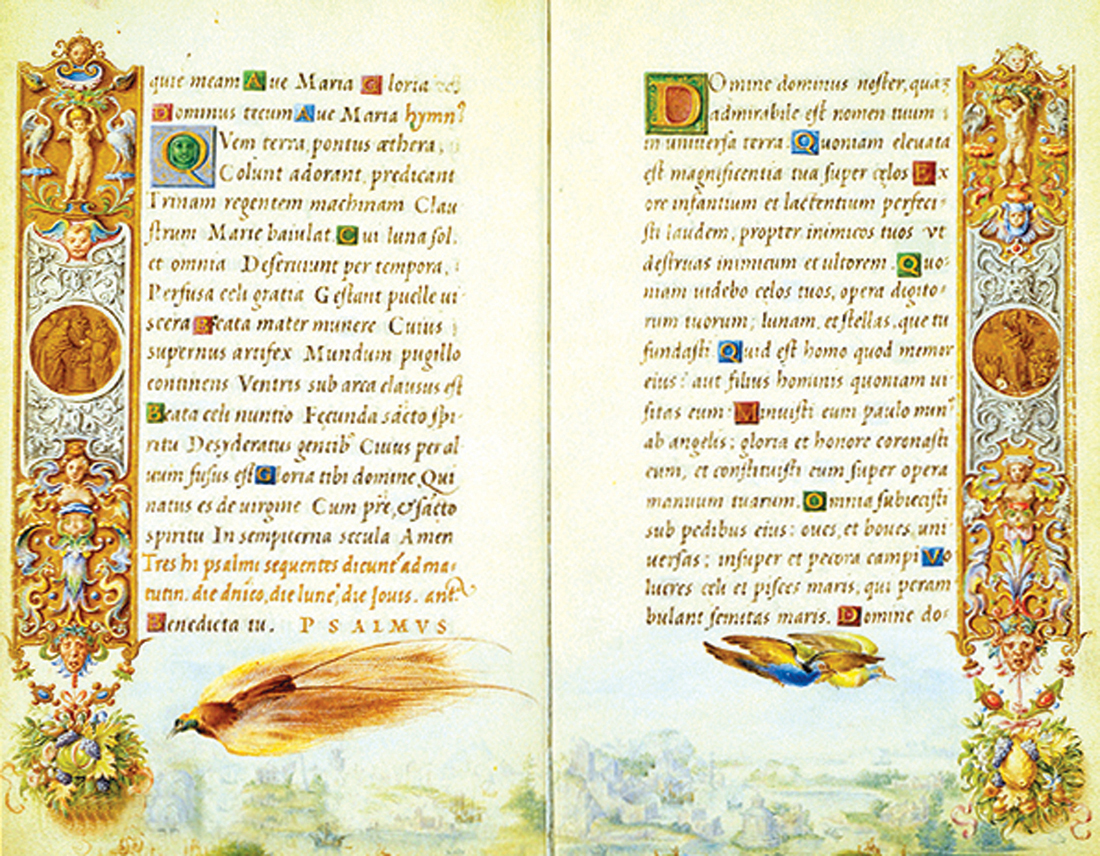 quie meam Aue Maria Gloria
Dominus tecum Aue Maria hymnꝰ
QVem terra, pontus æthera,
Colunt adorant, predicant
Trinam regentem machinam Clau
strum Marie baiulat. Cui luna sol,
et omnia Deseruiunt per tempora,
Perfusa celi gratia Gestant puelle ui-
scera Beata mater munere Cuius
supernus artifex Mundum pugillo
continens Ventris sub arca clausus est
Beata celi nuntio Fecunda sācto spi-
ritu Desyderatus gentibꝰ Cuius per al-
uum fusus est Gloria tibi domine Qui
natus es de uirgine Cum prē, & sācto
spiritu In sempiterna secula Amen
Tres hi psalmi sequentes dicunt᷑ ad ma-
tutin. die dnīco, die lune, die Jouis. ant.
Benedicta tu. PSALMVS
DOmine dominus noster, quaʒ
admirabile est nomen tuum
in uniuersa terra. Quoniam eleuata
est magnificentia tua super celos Ex
ore infantium et lactentium perfeci-
sti laudem, propter inimicos tuos vt
destruas inimicum et ultorem. Quo-
niam uidebo celos tuos, opera digito-
rum tuorum; lunam, et stellas, que tu
fundasti. Quid est homo quod memor
eius? aut filius hominis quoniam ui-
sitas eum Minuisti eum paulo minꝰ
ab angelis; gloria et honore coronasti
eum, et constituisti eum super opera
manuum tuarum. Omnia subiecisti
sub pedibus eius: oues, et boues, uni-
uersas; insuper et pecora campi Vo
lucres celi et pisces maris, qui peram-
bulant semitas maris. Domine do-